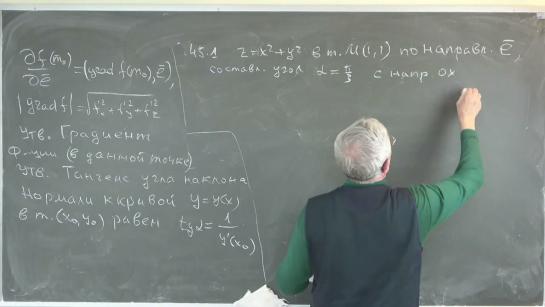 ∂f(m₀)/∂ē = (grad f(m₀), ē),
|grad f| = √(f'²ₓ + f'²ᵧ + f'²_z)
Утв. Градиент
ф-ции (в данной точке)
Утв. Тангенс угла наклона
нормали к кривой y=y(x)
в т. (x₀, y₀) равен tg α = 1/y'(x₀)
45.1 z=x²+y² в т. M(1,1) по направл. ē,
составл. угол α = π/3 с напр. OX